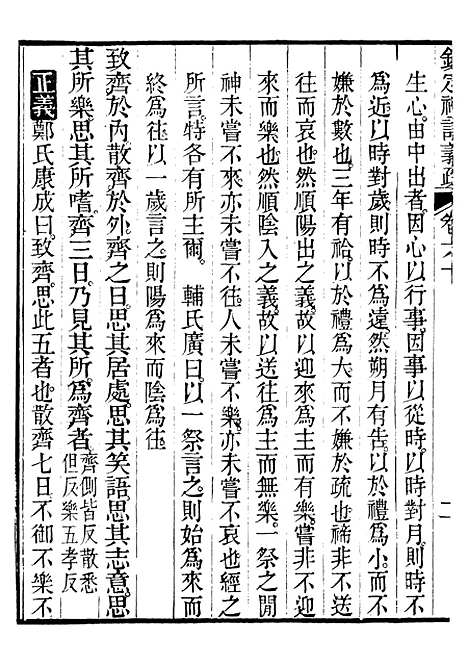 欽定禮記義疏 卷六十 二
生心由中出者因心以行事因事以從時以時對月則時不
爲近以時對歲則時不爲遠然朔月有告以於禮爲小而不
嫌於數也三年有祫以於禮爲大而不嫌於疏也禘非不送
往而哀也然順陽出之義故以迎來爲主而有樂嘗非不迎
來而樂也然順陰入之義故以送往爲主而無樂一祭之閒
神未嘗不來亦未嘗不往人未嘗不樂亦未嘗不哀也經之
所言特各有所主爾 輔氏廣曰以一祭言之則始爲來而
終爲往以一歲言之則陽爲來而陰爲往
致齊於內散齊於外齊之日思其居處思其笑語思其志意思
其所樂思其所嗜齊三日乃見其所爲齊者齊側皆反散悉
但反樂五孝反
正義鄭氏康成曰致齊思此五者也散齊七日不御不樂不